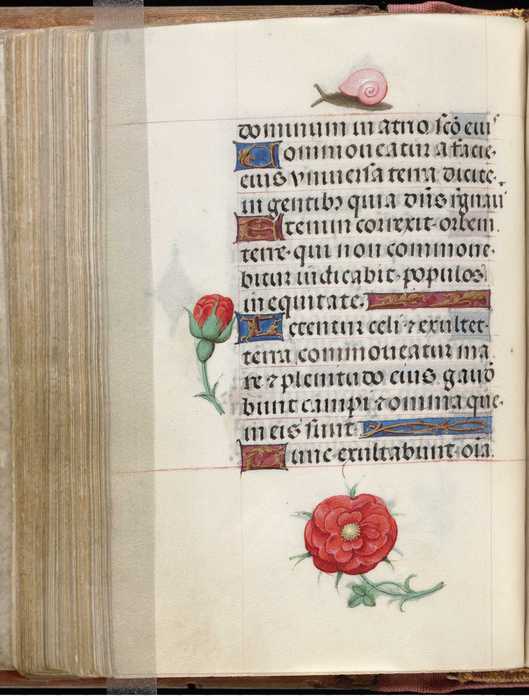 dominum in atrio scō eius
Commoveatur a facie
eius universa terra dicite
in gentibȝ quia dn̄s regnavit
Etenim correxit orbem
terre qui non commove
bitur iudicabit populos
in equitate.
Letentur celi ⁊ exultet
terra commoveatur ma
re ⁊ plenitudo eius gaudē
bunt campi ⁊ omnia que
in eis sunt
Tunc exultabunt oīa